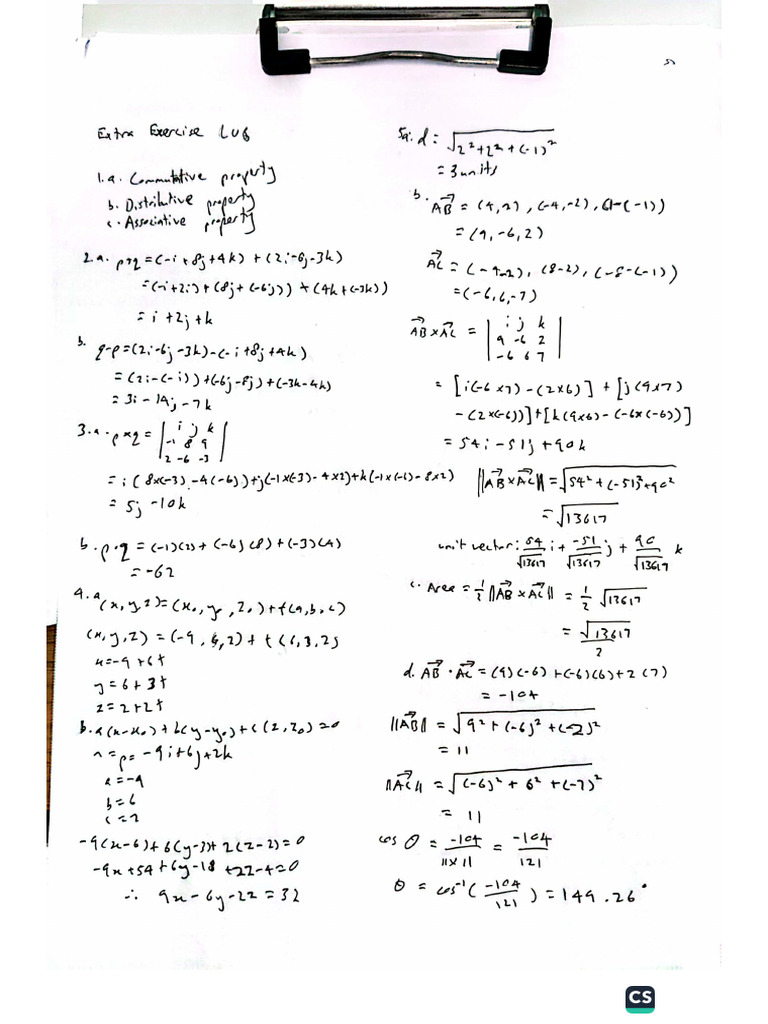 Extra Exercise LU6
1.a. Commutative property
b. Distributive property
c. Associative property
2.a. p+q = (-i+8j+4k) + (2i-6j-3k)
= (-i+2i) + (8j+(-6j)) + (4k+(-3k))
= i+2j+k
b. q-p = (2i-6j-3k) - (-i+8j+4k)
= (2i-(-i)) + (-6j-8j) + (-3k-4k)
= 3i-14j-7k
3.a. p×q = | i j k
-1 8 4
2 -6 -3 |
= i(8×(-3)-4(-6)) + j(-1×(-3)-4×2) + k(-1×(-6)-8×2)
= 5j-10k
b. p·q = (-1)(2) + (-6)(8) + (-3)(4)
= -62
4.a (x,y,z) = (x₀,y₀,z₀) + t(a,b,c)
(x,y,z) = (-9,6,2) + t(6,3,2)
x = -9+6t
y = 6+3t
z = 2+2t
b. a(x-x₀) + b(y-y₀) + c(z,z₀) = 0
n = p = -9i+6j+2k
a = -9
b = 6
c = 2
-9(x-6) + 6(y-3) + 2(z-2) = 0
-9x+54+6y-18+2z-4 = 0
∴ 9x-6y-2z = 32
5a. d = √2²+2²+(-1)²
= 3 units
b. AB = (4, ), (-4,-2), (1-(-1))
= (9,-6,2)
AC = (-4-2), (8-2), (-8-(-1))
= (-6,6,-7)
AB×AC = | i j k
9 -6 2
-6 6 7 |
= [i(-6×7)-(2×6)] + [j(9×7)
-(2×(-6))] + [k(9×6)-(-6×(-6))]
= 54i-51j+90k
||AB×AC|| = √54²+(-51)²+90²
= √13617
unit vector: 54/√13617 i + -51/√13617 j + 90/√13617 k
c. Area = 1/2 ||AB×AC|| = 1/2 √13617
= √13617/2
d. AB·AC = (9)(-6) + (-6)(6) + 2(7)
= -104
||AB|| = √9²+(-6)²+(-2)²
= 11
||AC|| = √(-6)²+6²+(-7)²
= 11
cos θ = -104/11×11 = -104/121
θ = cos⁻¹(-104/121) = 149.26°
CS